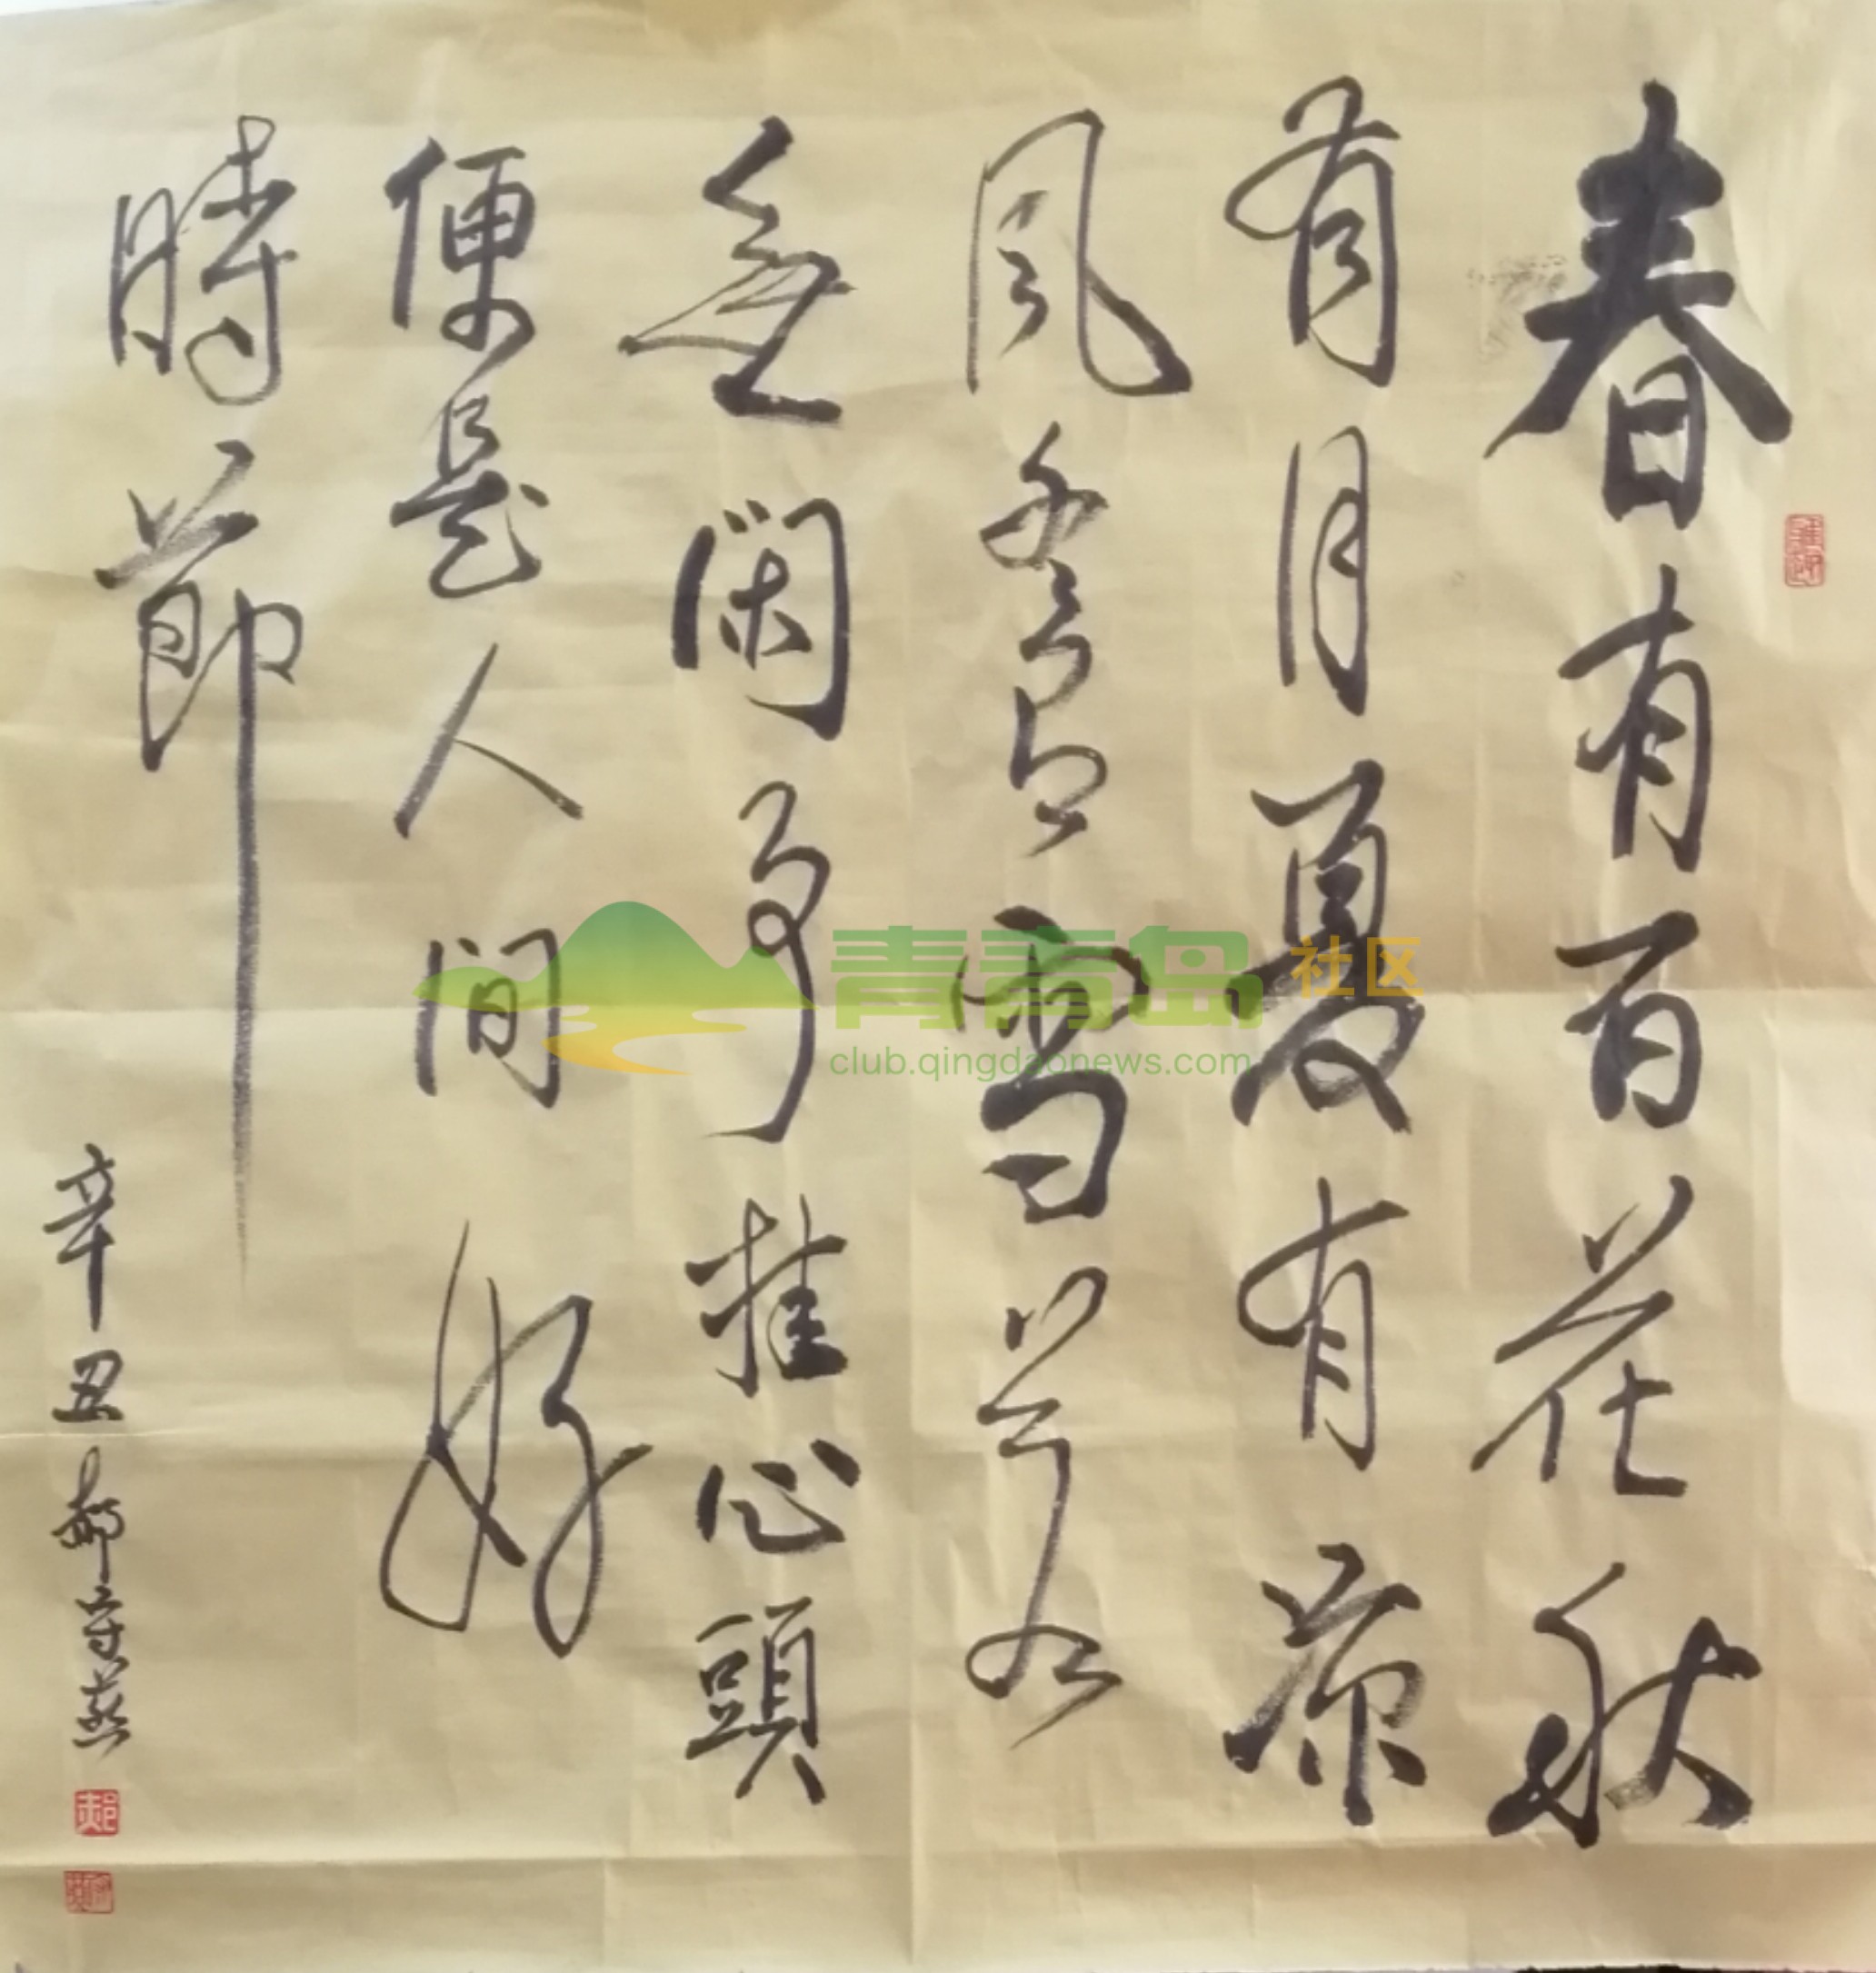 春有百花秋
有月夏有凉
風冬有雪若
無閑事挂心頭
便是人間好
時節
辛丑 郝守燕
青青岛社区
club.qingdaonews.com